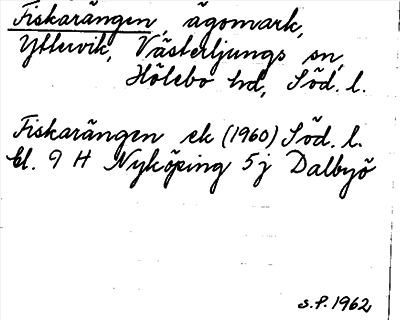 Fiskarängen, ägomark,
Yttervik, Västerljungs sn,
Hölebo hd, Söd. l.
Fiskarängen ek (1960) Söd. l.
bl. 9 H Nyköping 5j Dalbyö
S.P. 1962